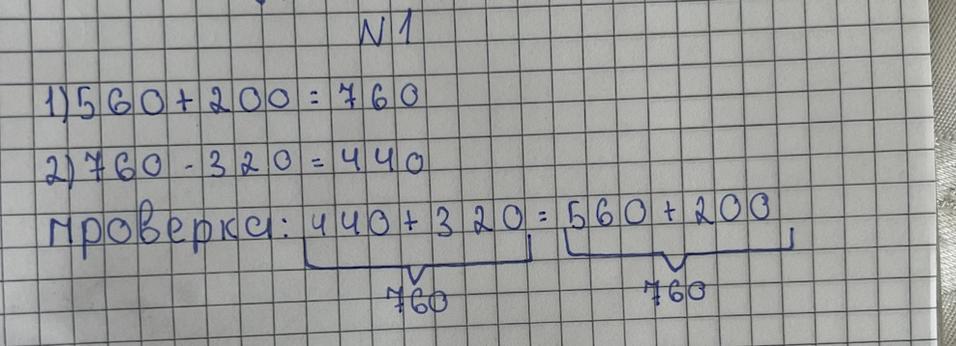 N 1
1) 560 + 200 = 760
2) 760 - 320 = 440
Проверка: 440 + 320 = 560 + 200
760 760